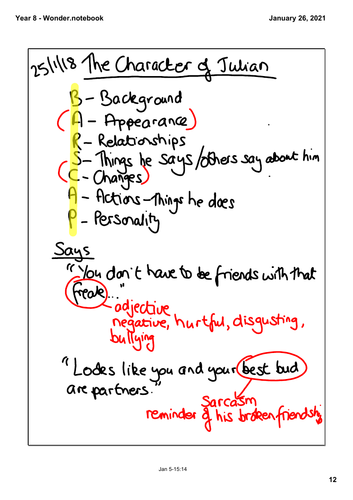 Year 8 - Wonder.notebook
January 26, 2021
25/1/18 The Character of Julian
B - Background
(A - Appearance)
R - Relationships
S - Things he says/others say about him
(C - Changes)
A - Actions - Things he does
P - Personality
Says
"You don't have to be friends with that
freak..."
adjective
negative, hurtful, disgusting,
bullying
"Looks like you and your best bud
are partners."
Sarcasm
reminder of his broken friendship
Jan 5-15:14
12